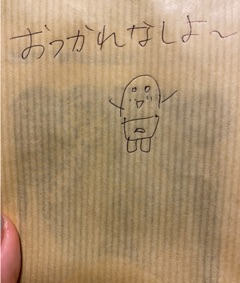 おつかれなしよ～